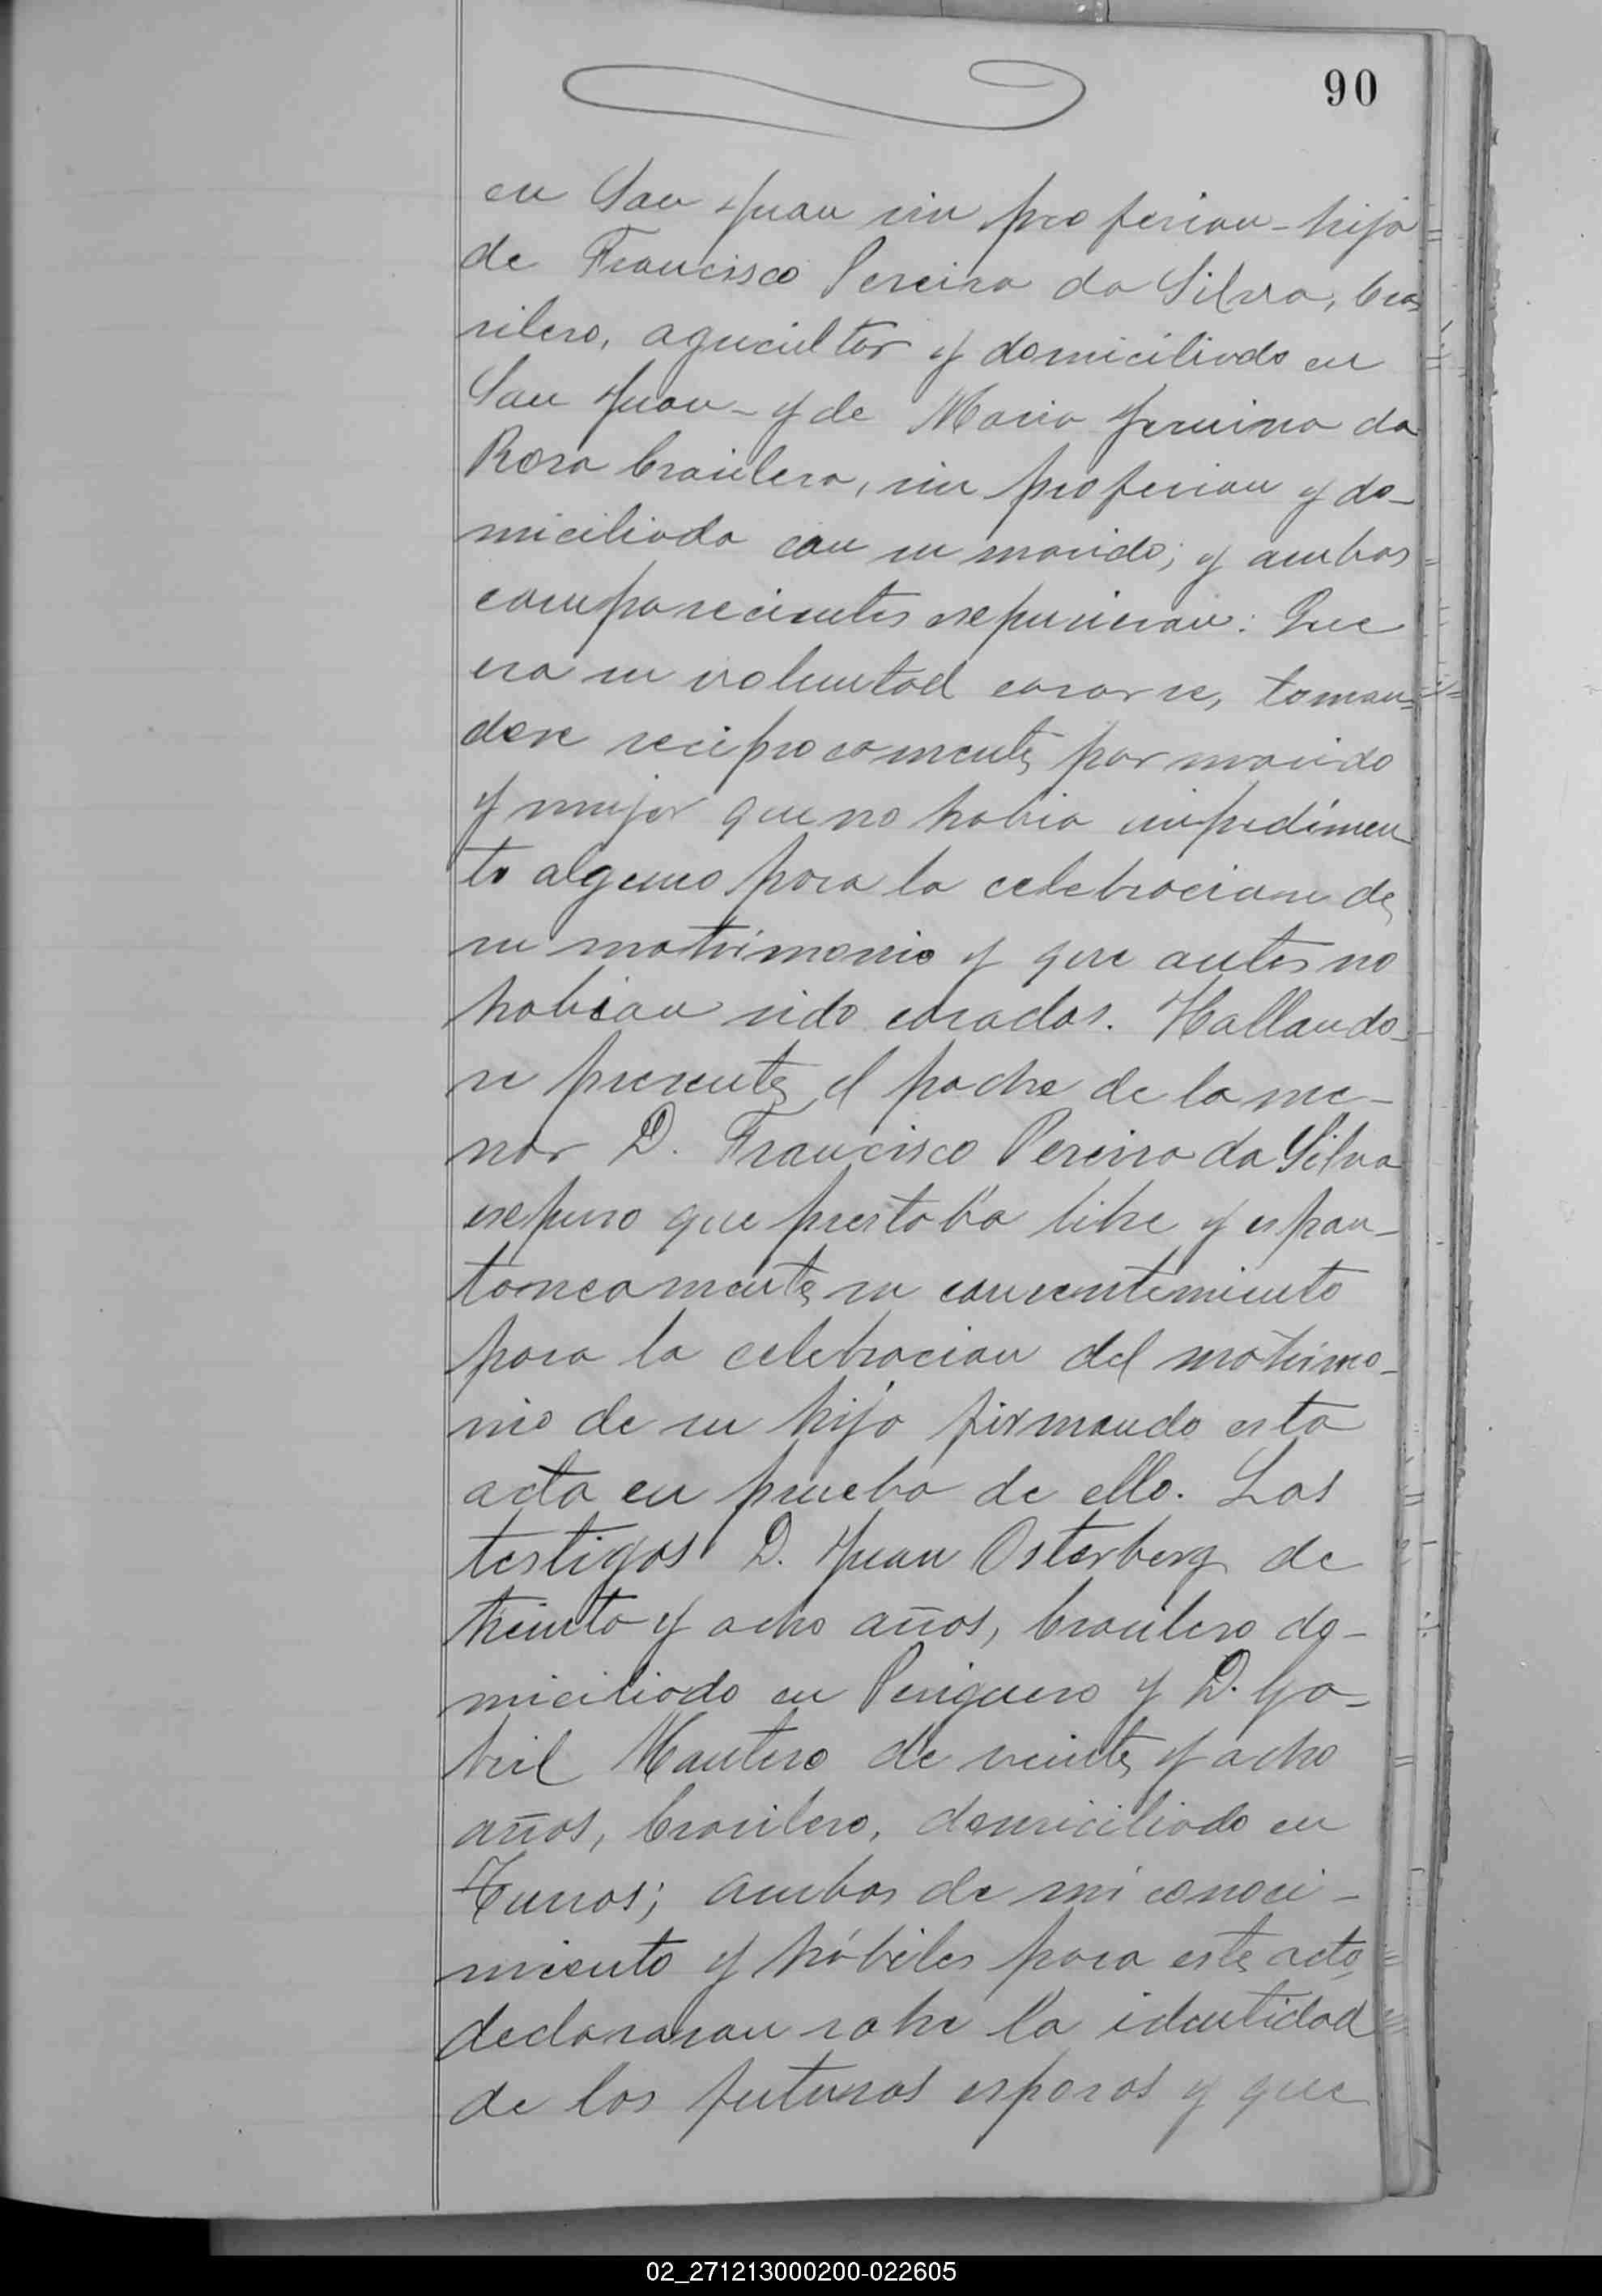 90
en San Juan sin profesion - hija
de Francisco Pereira da Silva, bra
silero, agricultor y domiciliado en
San Juan - y de Maria da
Rosa brasilera, sin profesion y do-
miciliada con su marido; y ambos
comparecientes espusieron: Que
era su voluntad casarse, toman=
dose reciprocamente por marido
y mujer que no habia impedimen
to alguno para la celebracion de
su matrimonio y que antes no
habian sido casados. Hallando-
se presente el padre de la me-
nor D. Francisco Pereira da Silva
espuso que prestaba libre y espon-
taneamente su consentimiento
para la celebracion del matrimo-
nio de su hija firmando esta
acta en prueba de ello. Los
testigos D. Juan Osterberg de
treinta y ocho años, brasilero do-
miciliado en y D. Ga-
briel Mantero de veinte y ocho
años, brasilero, domiciliado en
ambos de mi conoci-
miento y hábiles para este acto
declararon sobre la identidad
de los futuros esposos y que
02_271213000200-022605